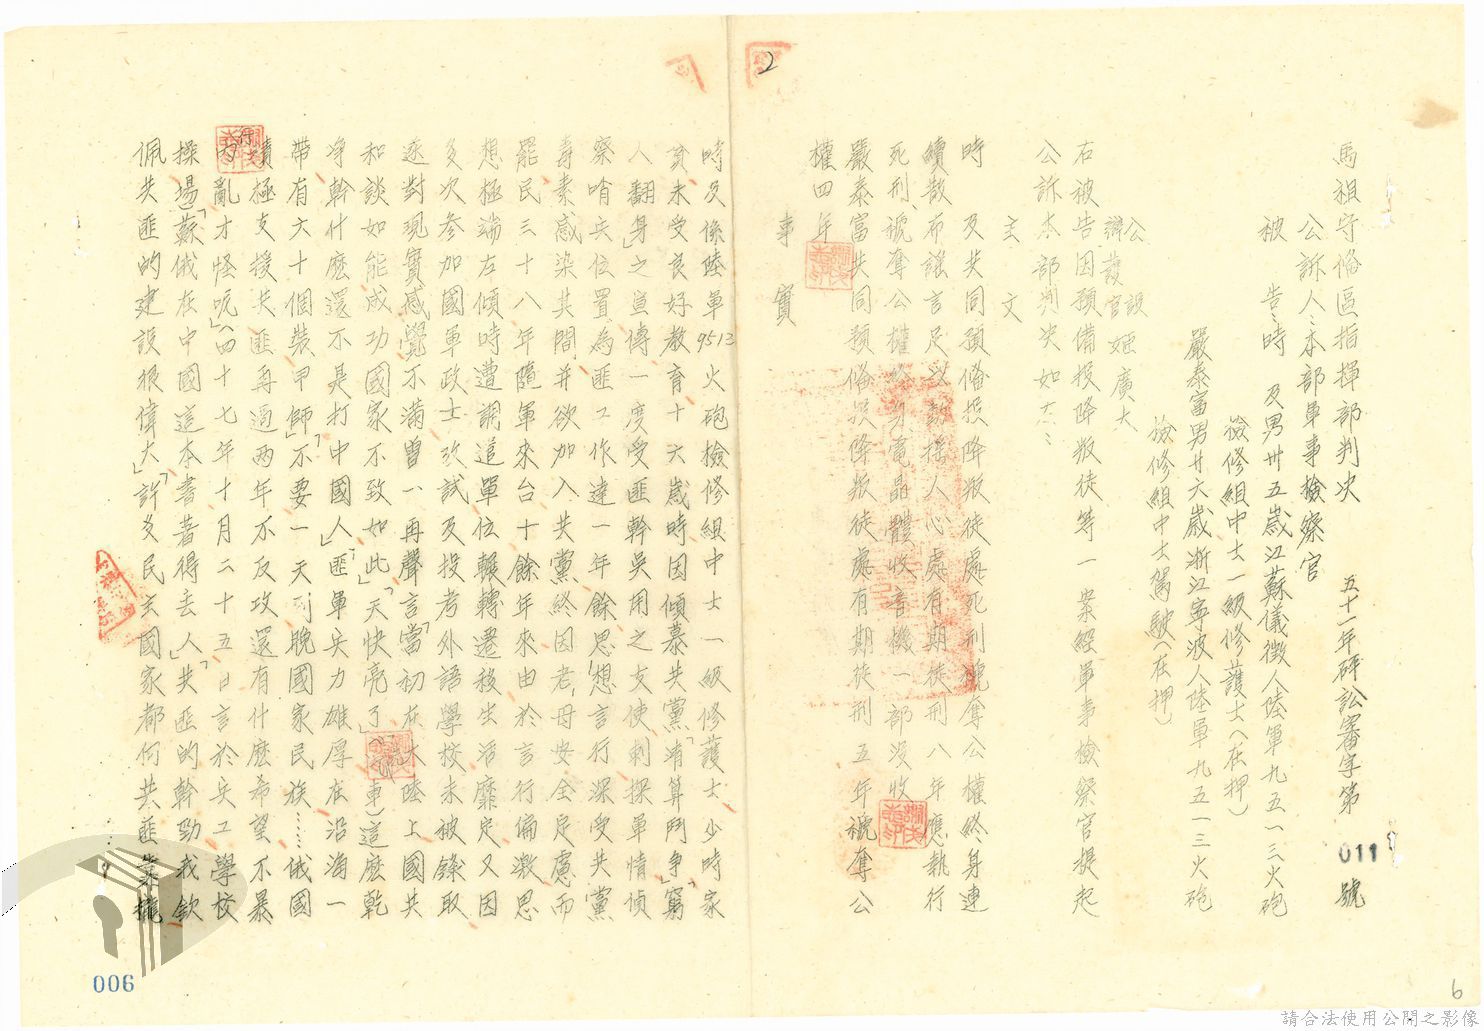 2
馬祖守備區指揮部判決
五十一年砰訟審字第011號
公訴人：本部軍事檢察官
被告：時 及男卅五歲江蘇儀徵人陸軍九五一三火砲
檢修組中士一級修護士（在押）
嚴泰富男廿六歲浙江寧波人陸軍九五一三火砲
檢修組中士駕駛（在押）
公設
辯護官 姬廣大
右被告因預備投降叛徒等一案經軍事檢察官提起
公訴本部判決如左：
主文
時 及共同預備投降叛徒處死刑褫奪公權終身連
續散布謠言足以動搖人心處有期徒刑八年應執行
死刑、褫奪公權終身電晶體收音機一部沒收
嚴泰富共同預備投降叛徒處有期徒刑五年褫奪公
權四年
事實
時及係陸軍9513火砲檢修組中士一級修護士少時家
貧未受良好教育十六歲時因傾慕共黨「清算鬥爭」「窮
人翻身」之宣傳一度受匪幹吳用之支使刺探軍情偵
察哨兵位置為匪工作達一年餘思想言行深受共黨
毒素感染其間并欲加入共黨終因老母安全是慮而
罷民三十八年隨軍來台十餘年來由於言行偏激思
想極端左傾時遭調這單位輾轉遷移生活靡定又因
多次參加國軍政士改試及投考外語學校未被錄取
逐對現實感覺不滿曾一再聲言「當初在大陸上國共
和談如能成功國家不致如此」「天快亮了」「（車）這麼乾
净幹什麼還不是打中國人」「匪軍兵力雄厚在沿海一
帶有六十個裝甲師」「不要一天到晚國家民族……俄國
積極支援共匪再過兩年不反攻還有什麼希望不暴
內亂才怪呢」（四十七年十月二十五日言於兵工學校
操場）「蘇俄在中國這本書著得丟人」「共匪的幹勁我欽
佩共匪的建設很偉大」「許多民主國家都何共匪靠攏
006
6
請合法使用公開之影像